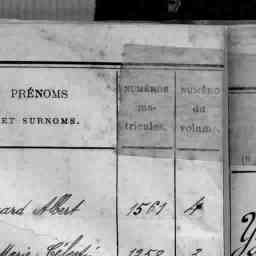 PRÉNOMS
ET SURNOMS.
NUMÉROS
ma-
tricules.
NUMÉRO
du
volume.
ard Albert 1561 4
Marie Célesti 1258